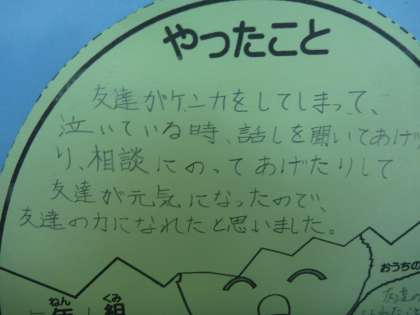 やったこと
友達がケンカをしてしまって、
泣いている時、話しを聞いてあげ
り、相談にのってあげたりして
友達が元気になったので、
友達の力になれたと思いました。
おうちの
ねん くみ
年 組
友達の